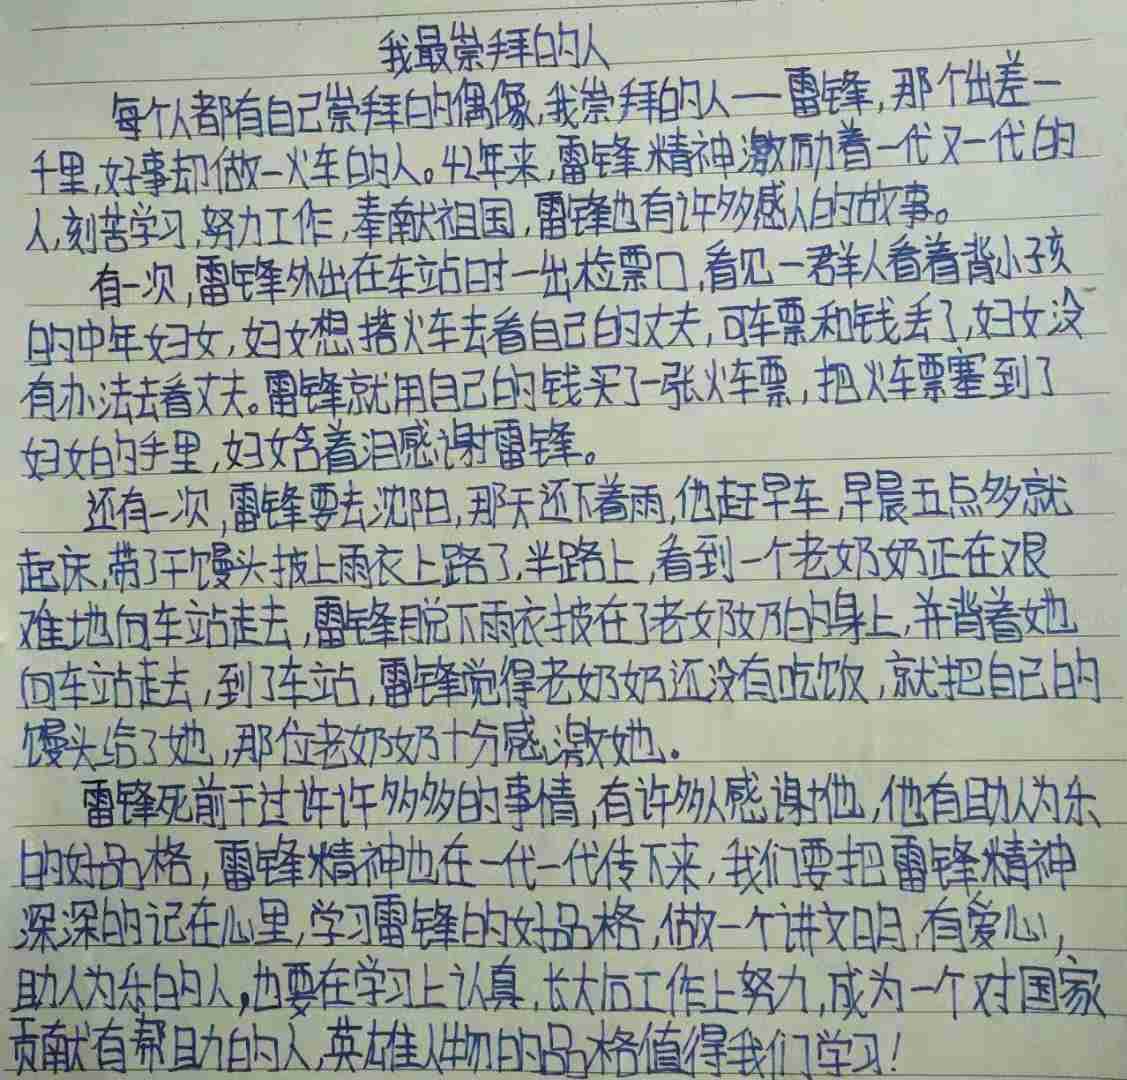 我最崇拜的人
每个人都有自己崇拜的偶像,我崇拜的人——雷锋,那个出差一
千里,好事却做一火车的人。42年来,雷锋精神激励着一代又一代的
人,刻苦学习,努力工作,奉献祖国,雷锋也有许多感人的故事。
有一次,雷锋外出在车站时一出检票口,看见一群人看着背小孩
的中年妇女,妇女想搭火车去看自己的丈夫,可车票和钱丢了,妇女没
有办法去看丈夫。雷锋就用自己的钱买了一张火车票,把火车票塞到了
妇女的手里,妇女含着泪感谢雷锋。
还有一次,雷锋要去沈阳,那天还下着雨,他赶早车,早晨五点多就
起床,带了干馒头披上雨衣上路了,半路上,看到一个老奶奶正在艰
难地向车站走去,雷锋脱下雨衣披在了老奶奶的身上,并背着她
向车站走去,到了车站,雷锋觉得老奶奶还没有吃饭,就把自己的
馒头给了她,那位老奶奶十分感激她。
雷锋死前干过许许多多的事情,有许多人感谢他,他有助人为乐
的好品格,雷锋精神也在一代一代传下来,我们要把雷锋精神
深深的记在心里,学习雷锋的好品格,做一个讲文明,有爱心,
助人为乐的人,也要在学习上认真,长大后工作上努力,成为一个对国家
贡献有帮助的人,英雄人物的品格值得我们学习!